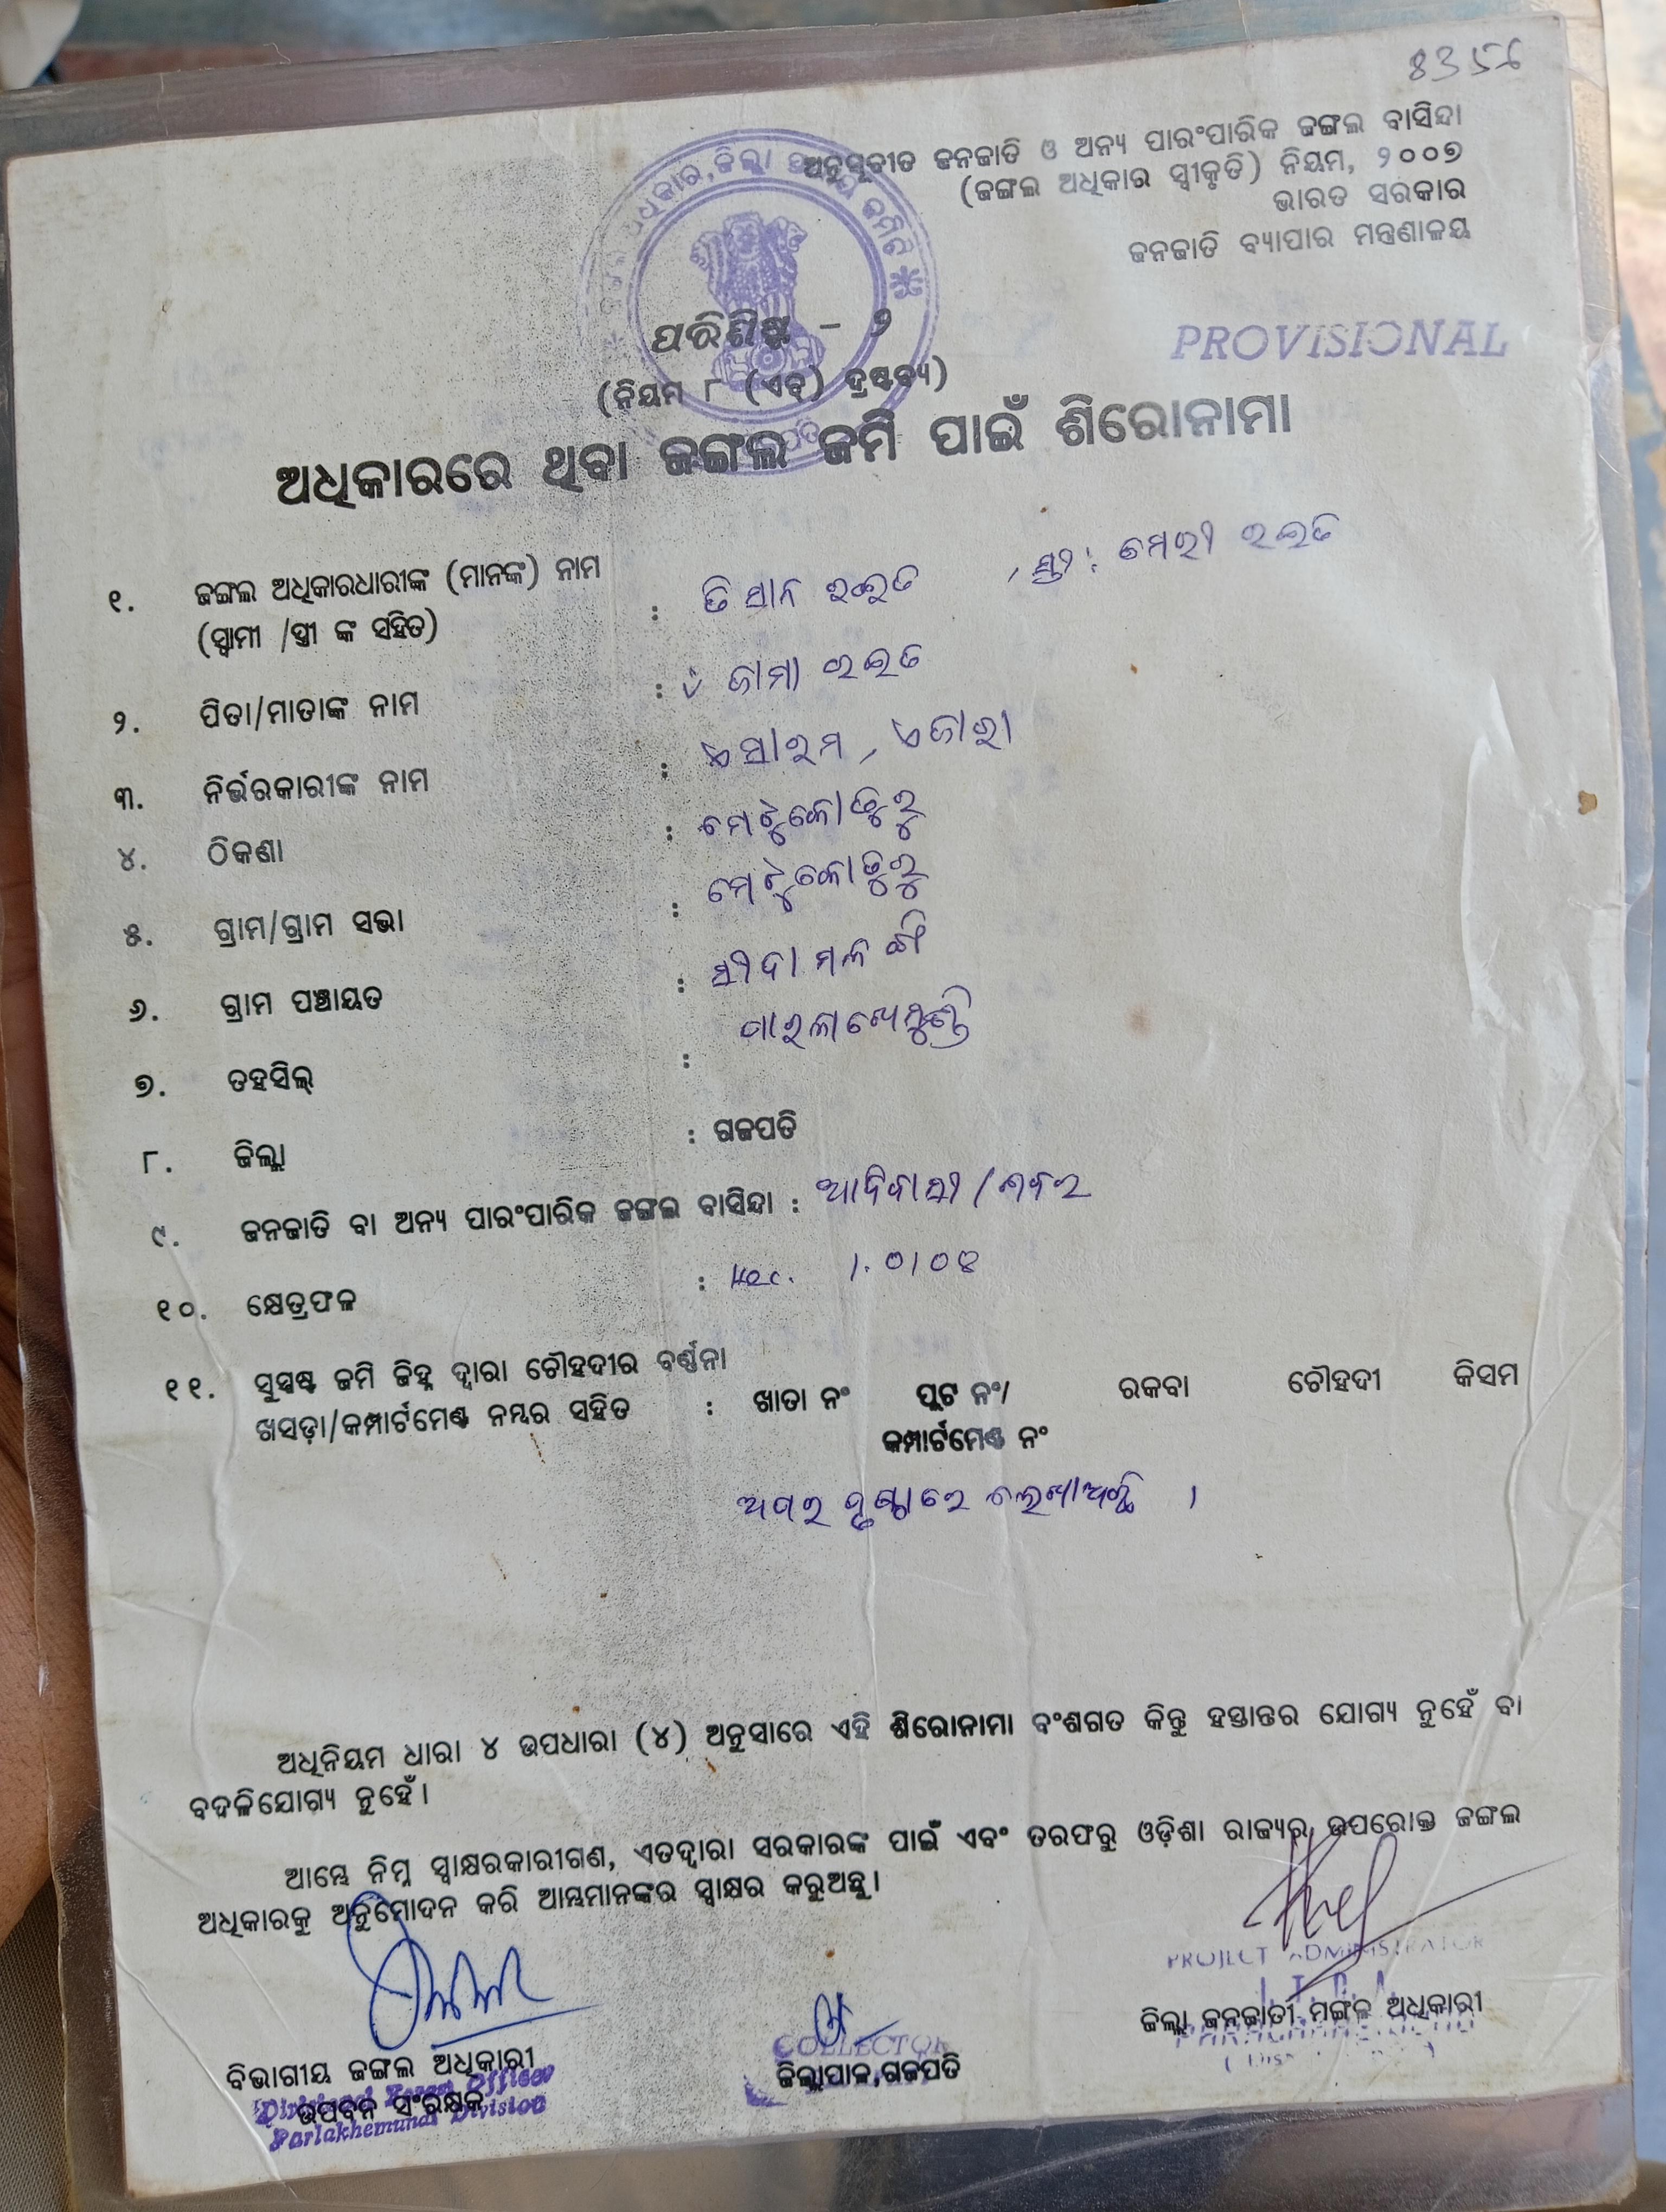 ୫୩୪୫
ଅନୁସୂଚୀତ ଜନଜାତି ଓ ଅନ୍ୟ ପାରଂପାରିକ ଜଙ୍ଗଲ ବାସିନ୍ଦା
(ଜଙ୍ଗଲ ଅଧିକାର ସ୍ୱୀକୃତି) ନିୟମ, ୨୦୦୭
ଭାରତ ସରକାର
ଜନଜାତି ବ୍ୟାପାର ମନ୍ତ୍ରଣାଳୟ
PROVISIONAL
ପରିଶିଷ୍ଟ – ୬
(ନିୟମ ୮ (ଏଚ୍) ଦ୍ରଷ୍ଟବ୍ୟ)
ଅଧିକାରରେ ଥିବା ଜଙ୍ଗଲ ଜମି ପାଇଁ ଶିରୋନାମା
୧. ଜଙ୍ଗଲ ଅଧିକାରଧାରୀଙ୍କ (ମାନଙ୍କ) ନାମ
(ସ୍ୱାମୀ /ସ୍ତ୍ରୀ ଙ୍କ ସହିତ) : ଡିସାନ ରଇତ , ସ୍ତ୍ରୀ: ମେରୀ ରଇତ
୨. ପିତା/ମାତାଙ୍କ ନାମ : ଜାମା ରଇତ
୩. ନିର୍ଭରକାରୀଙ୍କ ନାମ :
୪. ଠିକଣା :
୫. ଗ୍ରାମ/ଗ୍ରାମ ସଭା :
୬. ଗ୍ରାମ ପଞ୍ଚାୟତ :
୭. ତହସିଲ୍ : ପାରଳାଖେମୁଣ୍ଡି
୮. ଜିଲ୍ଲା : ଗଜପତି
୯. ଜନଜାତି ବା ଅନ୍ୟ ପାରଂପାରିକ ଜଙ୍ଗଲ ବାସିନ୍ଦା : ଆଦିବାସୀ / ଶବର
୧୦. କ୍ଷେତ୍ରଫଳ : Hec. 1.0108
୧୧. ସୁସ୍ପଷ୍ଟ ଜମି ଚିହ୍ନ ଦ୍ୱାରା ଚୌହଦୀର ବର୍ଣ୍ଣନା
ଖସଡ଼ା/କମ୍ପାର୍ଟମେଣ୍ଟ ନମ୍ବର ସହିତ : ଖାତା ନଂ ପ୍ଲଟ ନଂ/ ରକବା ଚୌହଦୀ କିସମ
କମ୍ପାର୍ଟମେଣ୍ଟ ନଂ
ଅପର ପୃଷ୍ଠାରେ ଲେଖାଅଛି ।
ଅଧିନିୟମ ଧାରା ୪ ଉପଧାରା (୪) ଅନୁସାରେ ଏହି ଶିରୋନାମା ବଂଶଗତ କିନ୍ତୁ ହସ୍ତାନ୍ତର ଯୋଗ୍ୟ ନୁହେଁ ବା
ବଦଳିଯୋଗ୍ୟ ନୁହେଁ।
ଆମ୍ଭେ ନିମ୍ନ ସ୍ୱାକ୍ଷରକାରୀଗଣ, ଏତଦ୍ୱାରା ସରକାରଙ୍କ ପାଇଁ ଏବଂ ତରଫରୁ ଓଡ଼ିଶା ରାଜ୍ୟର ଉପରୋକ୍ତ ଜଙ୍ଗଲ
ଅଧିକାରକୁ ଅନୁମୋଦନ କରି ଆମ୍ଭମାନଙ୍କର ସ୍ୱାକ୍ଷର କରୁଅଛୁ।
PROJECT ADMINISTRATOR
ଜିଲ୍ଲା ଜନଜାତୀ ମଙ୍ଗଳ ଅଧିକାରୀ
ବିଭାଗୀୟ ଜଙ୍ଗଲ ଅଧିକାରୀ
Divisional Forest Officer
ଉପବନ ସଂରକ୍ଷକ
Parlakhemundi Division
COLLECTOR
ଜିଲ୍ଲାପାଳ,ଗଜପତି